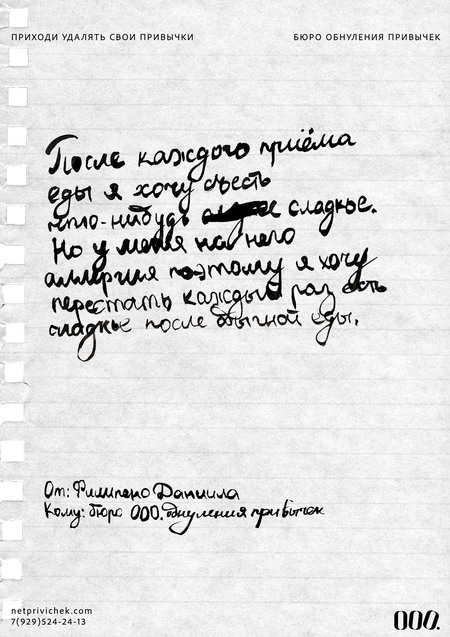 ПРИХОДИ УДАЛЯТЬ СВОИ ПРИВЫЧКИ
БЮРО ОБНУЛЕНИЯ ПРИВЫЧЕК
После каждого приёма
еды я хочу съесть
что-нибудь сладкое.
Но у меня на него
аллергия поэтому я хочу
перестать каждый раз есть
сладкое после обычной еды.
От: Филипенко Даниила
Кому: бюро 000. обнуления привычек
netprivichek.com
7(929)524-24-13
000.